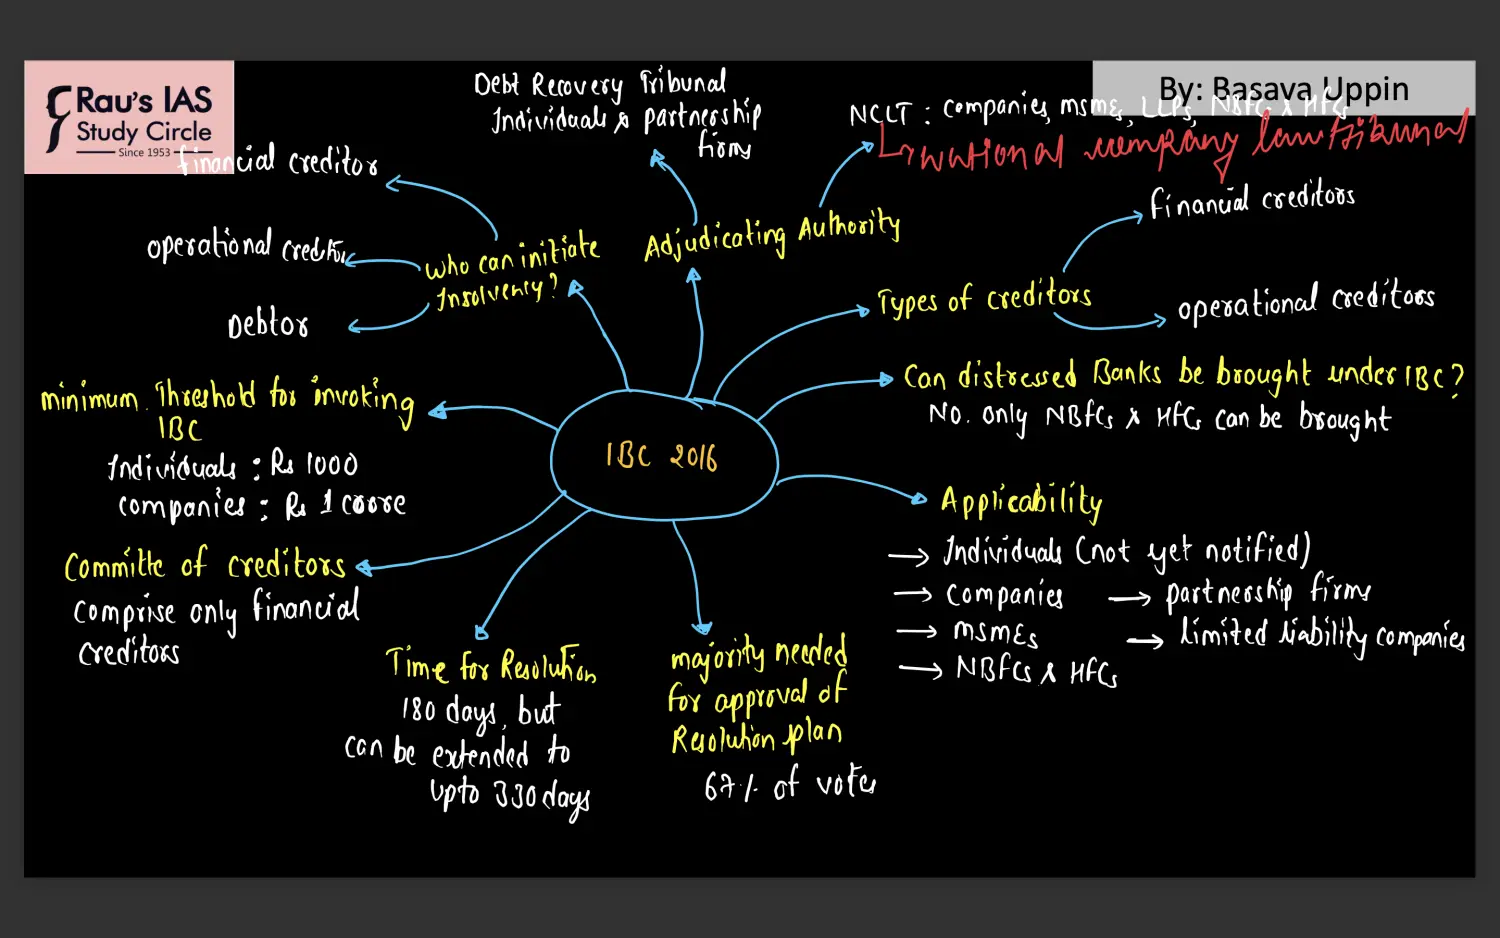 Rau's IAS
Study Circle
Since 1953
By: Basava Uppin
Debt Recovery Tribunal
Individuals & partnership
firms
NCLT : companies, msmEs, LLPs, NBFCs & HFCs
national company law tribunal
financial creditor
operational creditor
Debtor
who can initiate
Insolvency?
Adjudicating Authority
Types of creditors
financial creditors
operational creditors
Can distressed Banks be brought under IBC?
No. only NBFCs & HFCs can be brought
minimum Threshold for invoking
IBC
Individuals : Rs 1000
companies : Rs 1 crore
IBC 2016
Applicability
→ Individuals (not yet notified)
→ companies → partnership firms
→ msmEs → limited liability companies
→ NBFCs & HFCs
Committe of creditors
comprise only financial
creditors
Time for Resolution
180 days, but
can be extended to
upto 330 days
majority needed
for approval of
Resolution plan
67% of votes